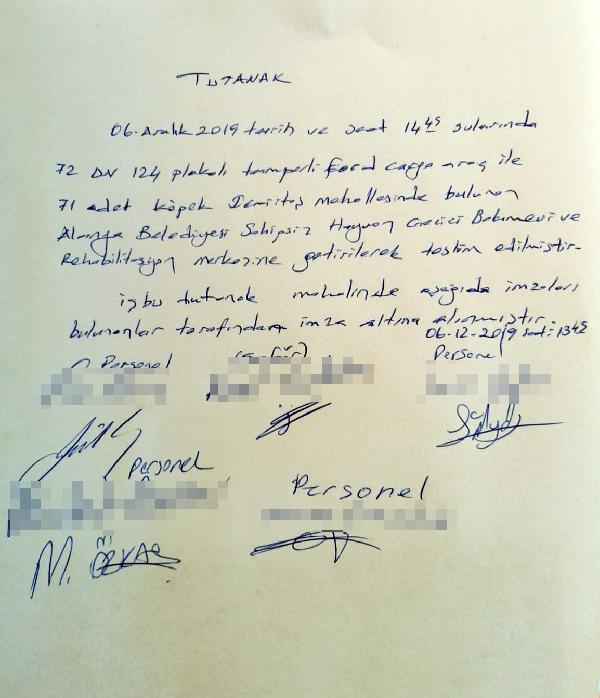 TUTANAK
06.Aralık 2019 tarih ve saat 14 45 sularında
72 DN 124 plakalı tamperli ford cargo araç ile
71 adet köpek Demirtaş mahallesinde bulunan
Alanya Belediyesi Sahipsiz Hayvan Geçici Bakımevi ve
Rehabilitasyon merkezine getirilerek teslim edilmiştir.
işbu tutanak mahalinde aşağıda imzaları
bulunanlar tarafından imza altına alınmıştır.
06-12-2019 saat: 1345
Personel
Personel
Personel
Personel
M.